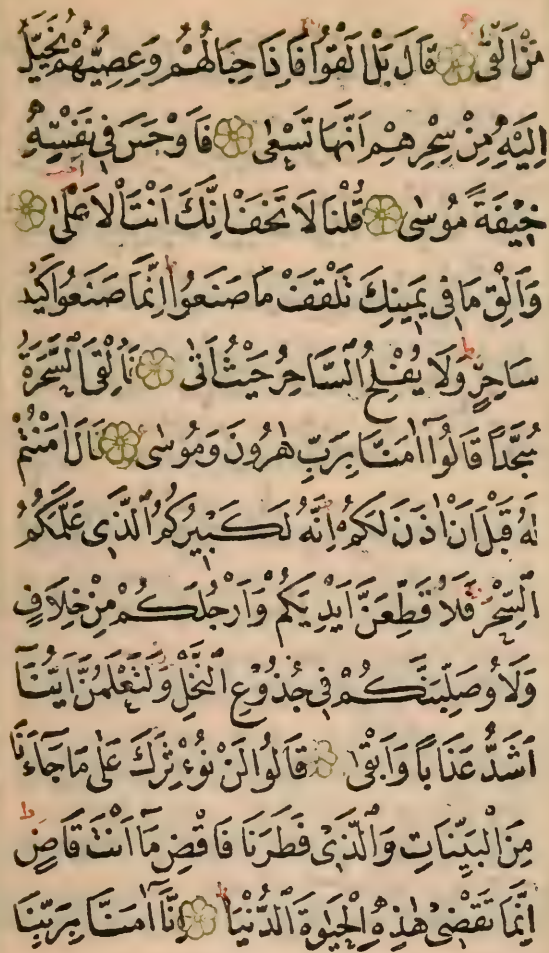 مَنْ اَلْقٰى ۝ قَالَ بَلْ اَلْقُوْا فَاِذَا حِبَالُهُمْ وَعِصِيُّهُمْ يُخَيَّلُ
اِلَيْهِ مِنْ سِحْرِهِمْ اَنَّهَا تَسْعٰى ۝ فَاَوْجَسَ فِى نَفْسِهِ
خِيفَةً مُوسٰى ۝ قُلْنَا لَا تَخَفْ اِنَّكَ اَنْتَ الْاَعْلٰى ۝
وَاَلْقِ مَا فِى يَمِينِكَ تَلْقَفْ مَا صَنَعُوا ط اِنَّمَا صَنَعُوا كَيْدُ
سَاحِرٍ ط وَلَا يُفْلِحُ السَّاحِرُ حَيْثُ اَتٰى ۝ فَاُلْقِىَ السَّحَرَةُ
سُجَّدًا قَالُوا اٰمَنَّا بِرَبِّ هٰرُونَ وَمُوسٰى ۝ قَالَ اٰمَنْتُمْ
لَهُ قَبْلَ اَنْ اٰذَنَ لَكُمْ اِنَّهُ لَكَبِيرُكُمُ الَّذِى عَلَّمَكُمُ
السِّحْرَ فَلَاُقَطِّعَنَّ اَيْدِيَكُمْ وَاَرْجُلَكُمْ مِنْ خِلَافٍ
وَلَاُوصَلِّبَنَّكُمْ فِى جُذُوعِ النَّخْلِ وَلَتَعْلَمُنَّ اَيُّنَا
اَشَدُّ عَذَابًا وَاَبْقٰى ۝ قَالُوا لَنْ نُؤْثِرَكَ عَلٰى مَا جَاءَنَا
مِنَ الْبَيِّنَاتِ وَالَّذِى فَطَرَنَا فَاقْضِ مَا اَنْتَ قَاضٍ ط
اِنَّمَا تَقْضِى هٰذِهِ الْحَيٰوةَ الدُّنْيَا ط ۝ اِنَّا اٰمَنَّا بِرَبِّنَا